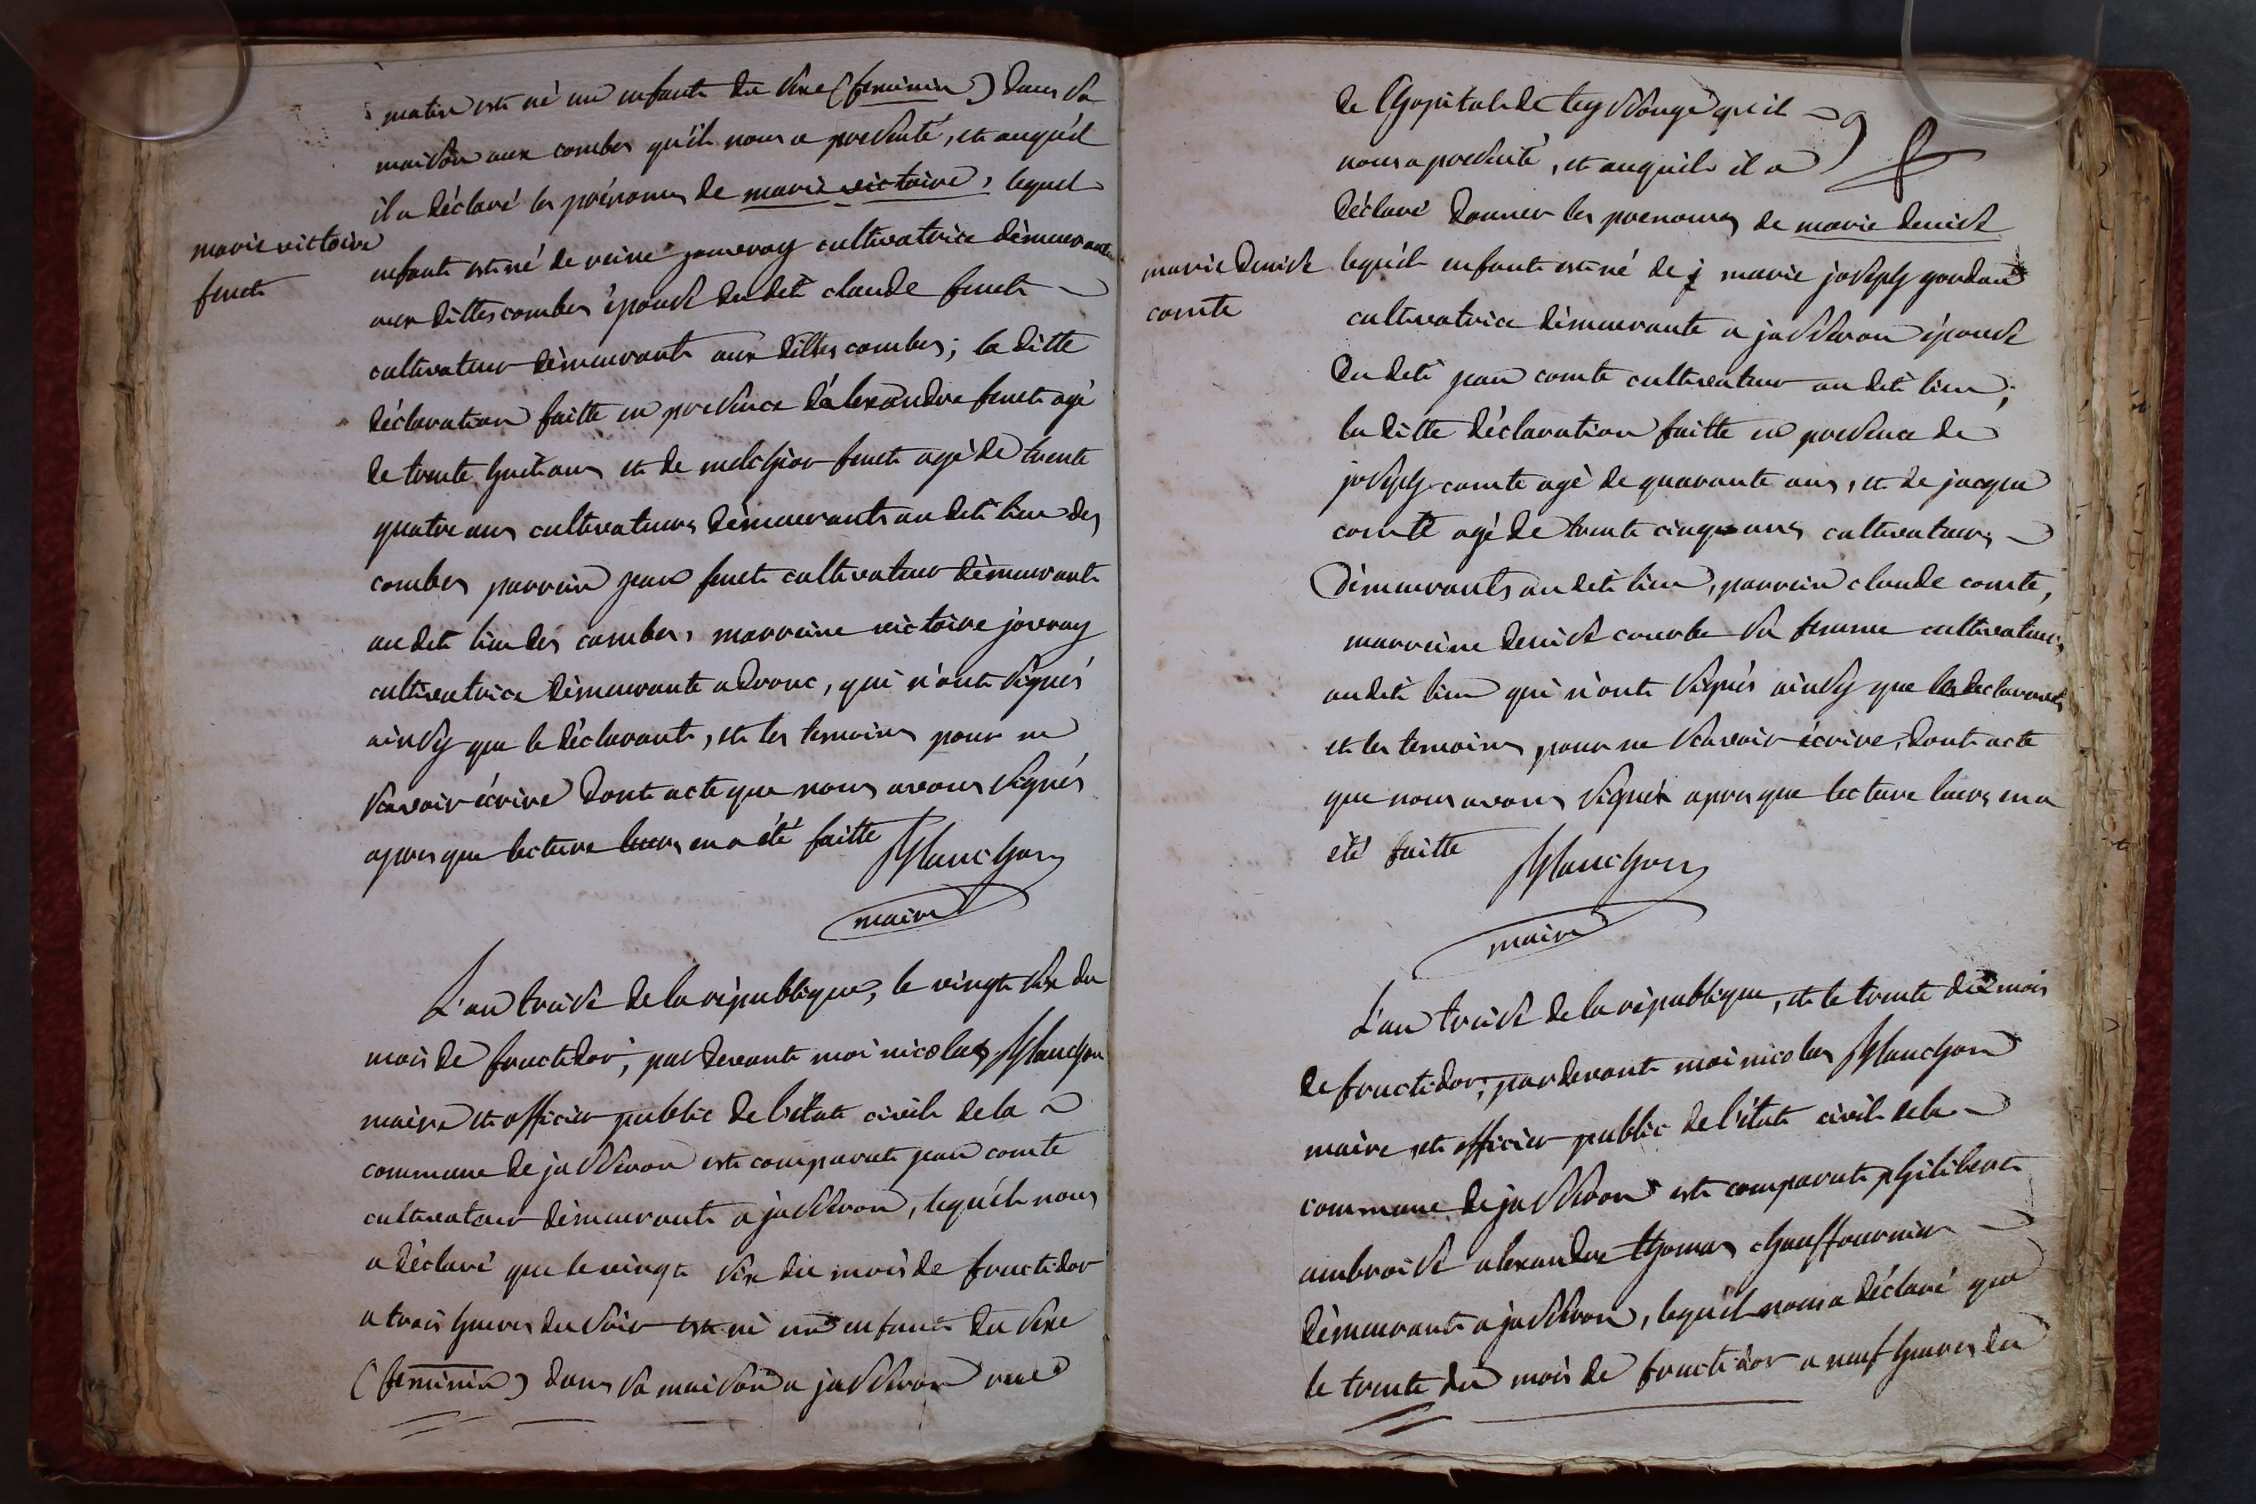 matin est né un enfant du sexe (feminin) dans sa
maison aux combes qu'il nous a presenté, et auquel
il a déclaré les prénoms de marie victoire, lequel
marie victoire
furet
enfant est né de reine jouvray cultivatrice démeurante
aux dittes combes épouse du dit claude furet
cultivateur démeurant aux dittes combes; la ditte
déclaration faitte en presence d'alexandre furet agé
de trente huit ans et de melchior furet agé de trente
quatre ans cultivateurs démeurants au dit lieu des
combes parrein jean furet cultivateur démeurant
au dit lieu des combes, marreine victoire jovray
cultivatrice démeurante a dronc, qui n'ont signés
ainsy que le déclarant, et les temoins pour ne
scavoir écrire dont acte que nous avons signés
apres que lecture leurs en a été faitte
planchon
maire
L'an treise de la république, le vingt six du
mois de fructidor, par devant moi nicolas planchon
maire et officier public de l'état civil de la
commune de jasseron est comparut jean comte
cultivateur démeurant a jasseron, lequél nous
a déclaré que le vingt six du mois de fructidor
a trois heures du soir est né un enfant du sexe
(feminin) dans sa maison a jasseron rue
de l'hopital de qu'il
nous a presenté, et auquel il a
déclaré donner les prenoms de marie denise
marie denise
comte
lequél enfant est né de j marie joseph goudard
cultivatrice démeurante a jasseron épouse
du dit jean comte cultivateur au dit lieu;
la ditte déclaration faitte en presence de
joseph comte agé de quarante ans, et de jacque
comte agé de trente cinq ans cultivateurs
démeurants au dit lieu, parrein claude comte,
marreine denise courbe sa femme cultivateurs
au dit lieu qui n'ont signés ainsy que les declarants
et les temoins, pour ne scavoir écrire, dont acte
que nous avons signés apres que lecture leurs en a
été faitte
planchon
maire
L'an treise de la république, et le trente du mois
de fructidor, par devant moi nicolas planchon
maire et officier public de l'état civil de la
commune de jasseron est comparut philibert
ambroise alexandre thomas chauffournier
démeurant a jasseron, lequel nous a déclaré que
le trente du mois de fructidor a neuf heures du